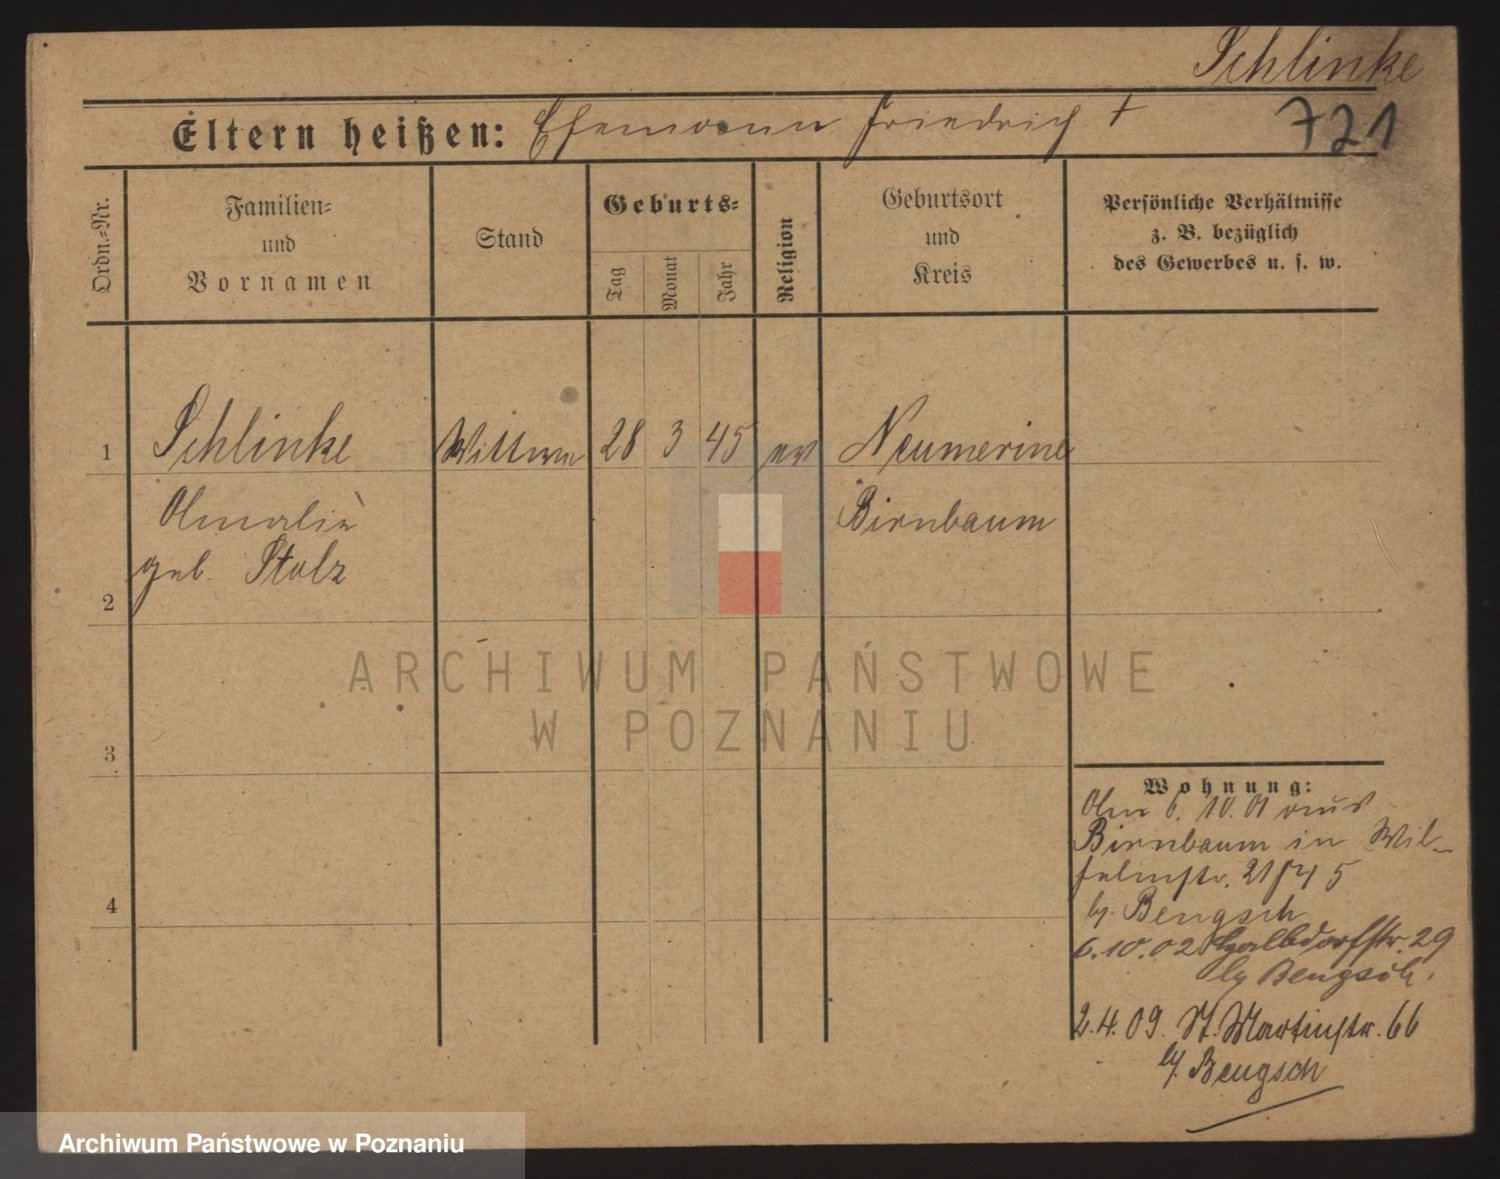 Schlinke
Eltern heißen: Ehemann Friedrich †
721
Ordn.-Nr.
Familien-
und
Vornamen
Stand
Geburts-
Tag
Monat
Jahr
Religion
Geburtsort
und
Kreis
Persönliche Verhältnisse
z. B. bezüglich
des Gewerbes u. s. w.
1 Schlinke Wittwe 28 3 45 ev Neumerine
Amalie Birnbaum
geb. Stolz
2
ARCHIWUM PAŃSTWOWE
W POZNANIU
3
Wohnung:
Am 6. 10. 01 aus
Birnbaum in Wil-
helmstr. 21
b. Bengsch
4
6.10.02 29
b Bengsch.
2.4.09. St. Martinstr. 66
b. Bengsch
Archiwum Państwowe w Poznaniu